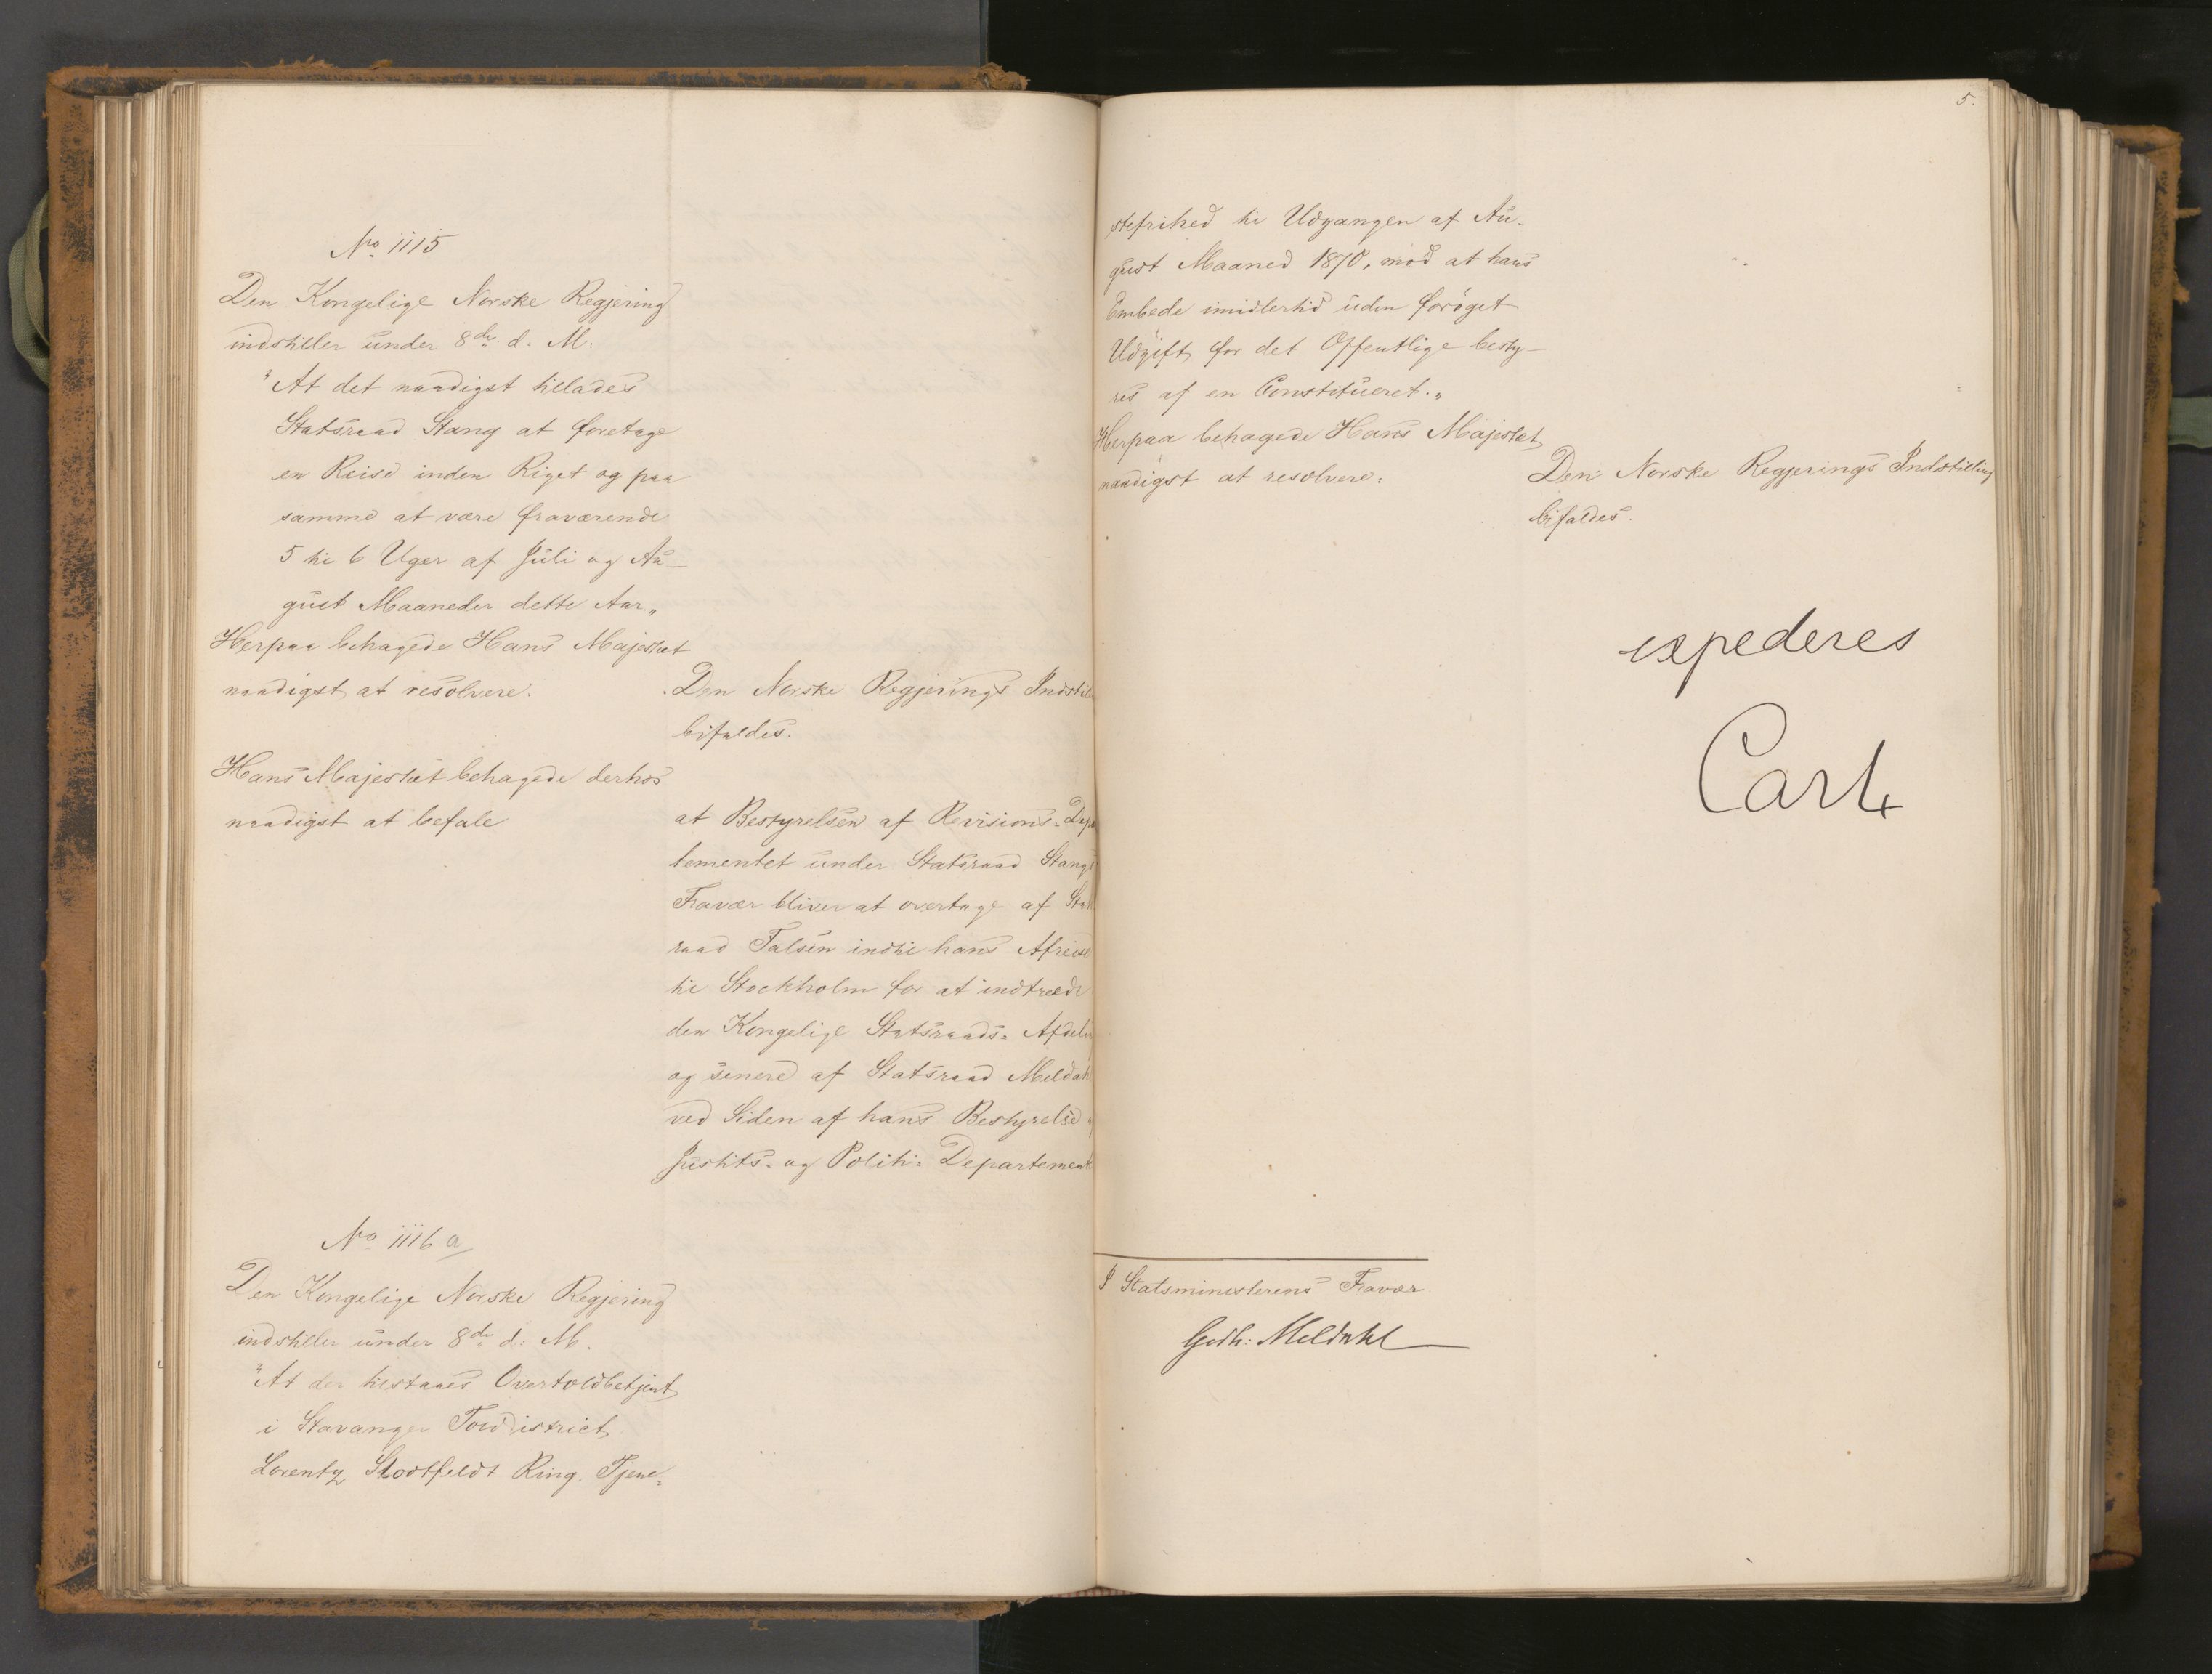 No. 1115
Den Kongelige Norske Regjering
indstiller under 8de d. M:
"At det naadigst tillades
Statsraad Stang at foretage
en Reise inden Riget og paa
samme at være fraværende
5 til 6 Uger af Juli og Au-
gust Maaneder dette Aar„
Herpaa behagede Hans Majestæt
naadigst at resolvere.
Den Norske Regjerings Indstil
bifaldes.
Hans Majestæt behagede derhos
naadigst at befale
at Bestyrelsen af Revisions-Depa
tementet under Statsraad Stangs
Fravær bliver at overtage af Stats
raad Falsen indtil hans Afreise
til Stockholm for at indtræde
den Kongelige Statsraads-Afdeli
og senere af Statsraad Meldah
ved Siden af hans Bestyrelse
Justits- og Politi-Departement
No. 1116 a
Den Kongelige Norske Regjering
indstiller under 8de d. M.
"At der tilstaaes Overtoldbetjent
i Stavanger Tolddistrict
Lorentz Slodtfeldt Ring, Tjene-
5.
stefrihed til Udgangen af Au-
gust Maaned 1870, mod at hans
Embede imidlertid uden forøget
Udgift for det Offentlige besty-
res af en Constitueret.„
Herpaa behagede Hans Majestæt
naadigst at resolvere:
Den Norske Regjerings Indstilling
bifaldes.
expederes
Carl
I Statsministerens Fravær
Meldahl